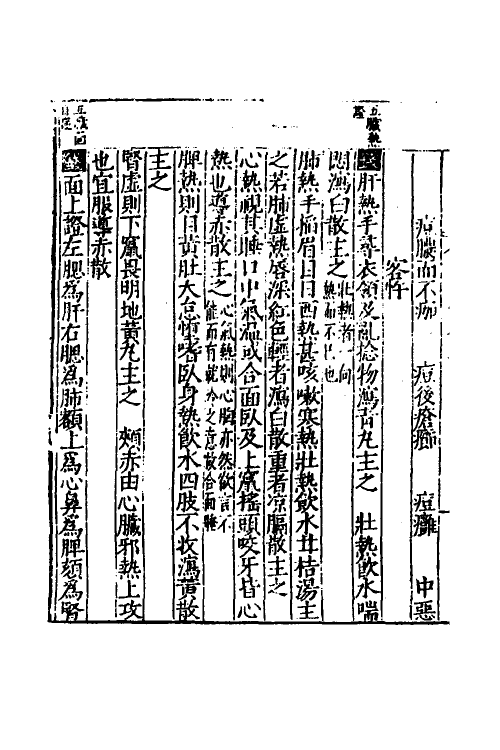 痘膿而不痂　痘後瘡癤　痘癰　中惡
客忤
五臟熱證
錢肝熱手尋衣領及亂捻物瀉青丸主之　壯熱飲水喘
悶瀉白散主之壯熱者一向熱而不已也
肺熱手掐眉目日西熱甚咳嗽寒熱壯熱飲水甘桔湯主
之若肺虛熱唇深紅色輕者瀉白散重者凉膈散主之
心熱視其睡口中氣溫或合面臥及上竄搖頭咬牙皆心
熱也導赤散主之心氣熱則心胸亦然欲言不能而有就冷之意故合面睡
脾熱則目黃肚大怠惰嗜臥身熱飲水四肢不收瀉黃散
主之
腎虛則下竄畏明地黃丸主之　頰赤由心臟邪熱上攻
也宜服導赤散
五臟面
錢面上證左腮為肝右腮為肺額上為心鼻為脾頦為腎